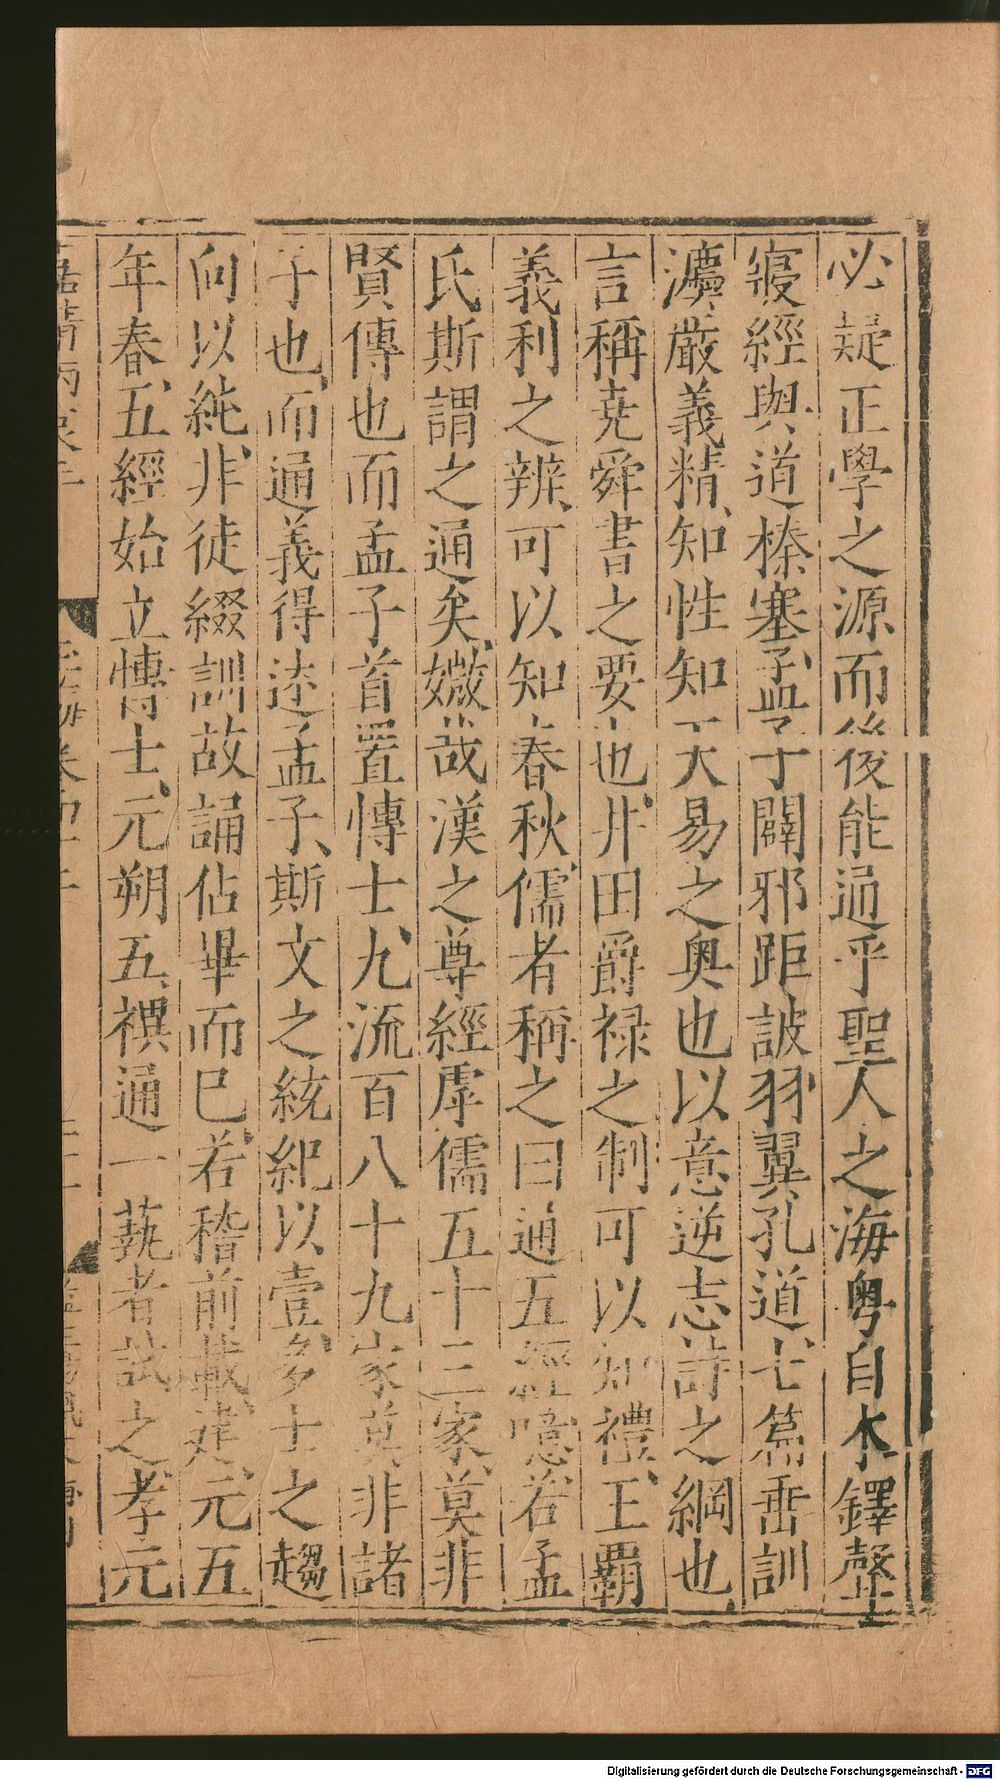 必疑正學之源而後能通乎聖人之海粵自木鐸聲
寢經與道榛塞孟子闢邪距詖羽翼孔道七篇垂訓
灋嚴義精知性知天易之奥也以意逆志詩之綱也
言稱堯舜書之要也井田爵禄之制可以知禮王霸
義利之辨可以知春秋儒者稱之曰通五經噫若孟
氏斯謂之通矣媺哉漢之尊經虖儒五十三家莫非
賢傳也而孟子首置博士九流百八十九家莫非諸
子也而通義得述孟子斯文之統紀以壹多士之趨
向以純非徒綴訓故誦佔畢而已若稽前載建元五
年春五經始立博士元朔五禩通一蓺者試之孝元
Digitalisierung gefördert durch die Deutsche Forschungsgemeinschaft - DFG